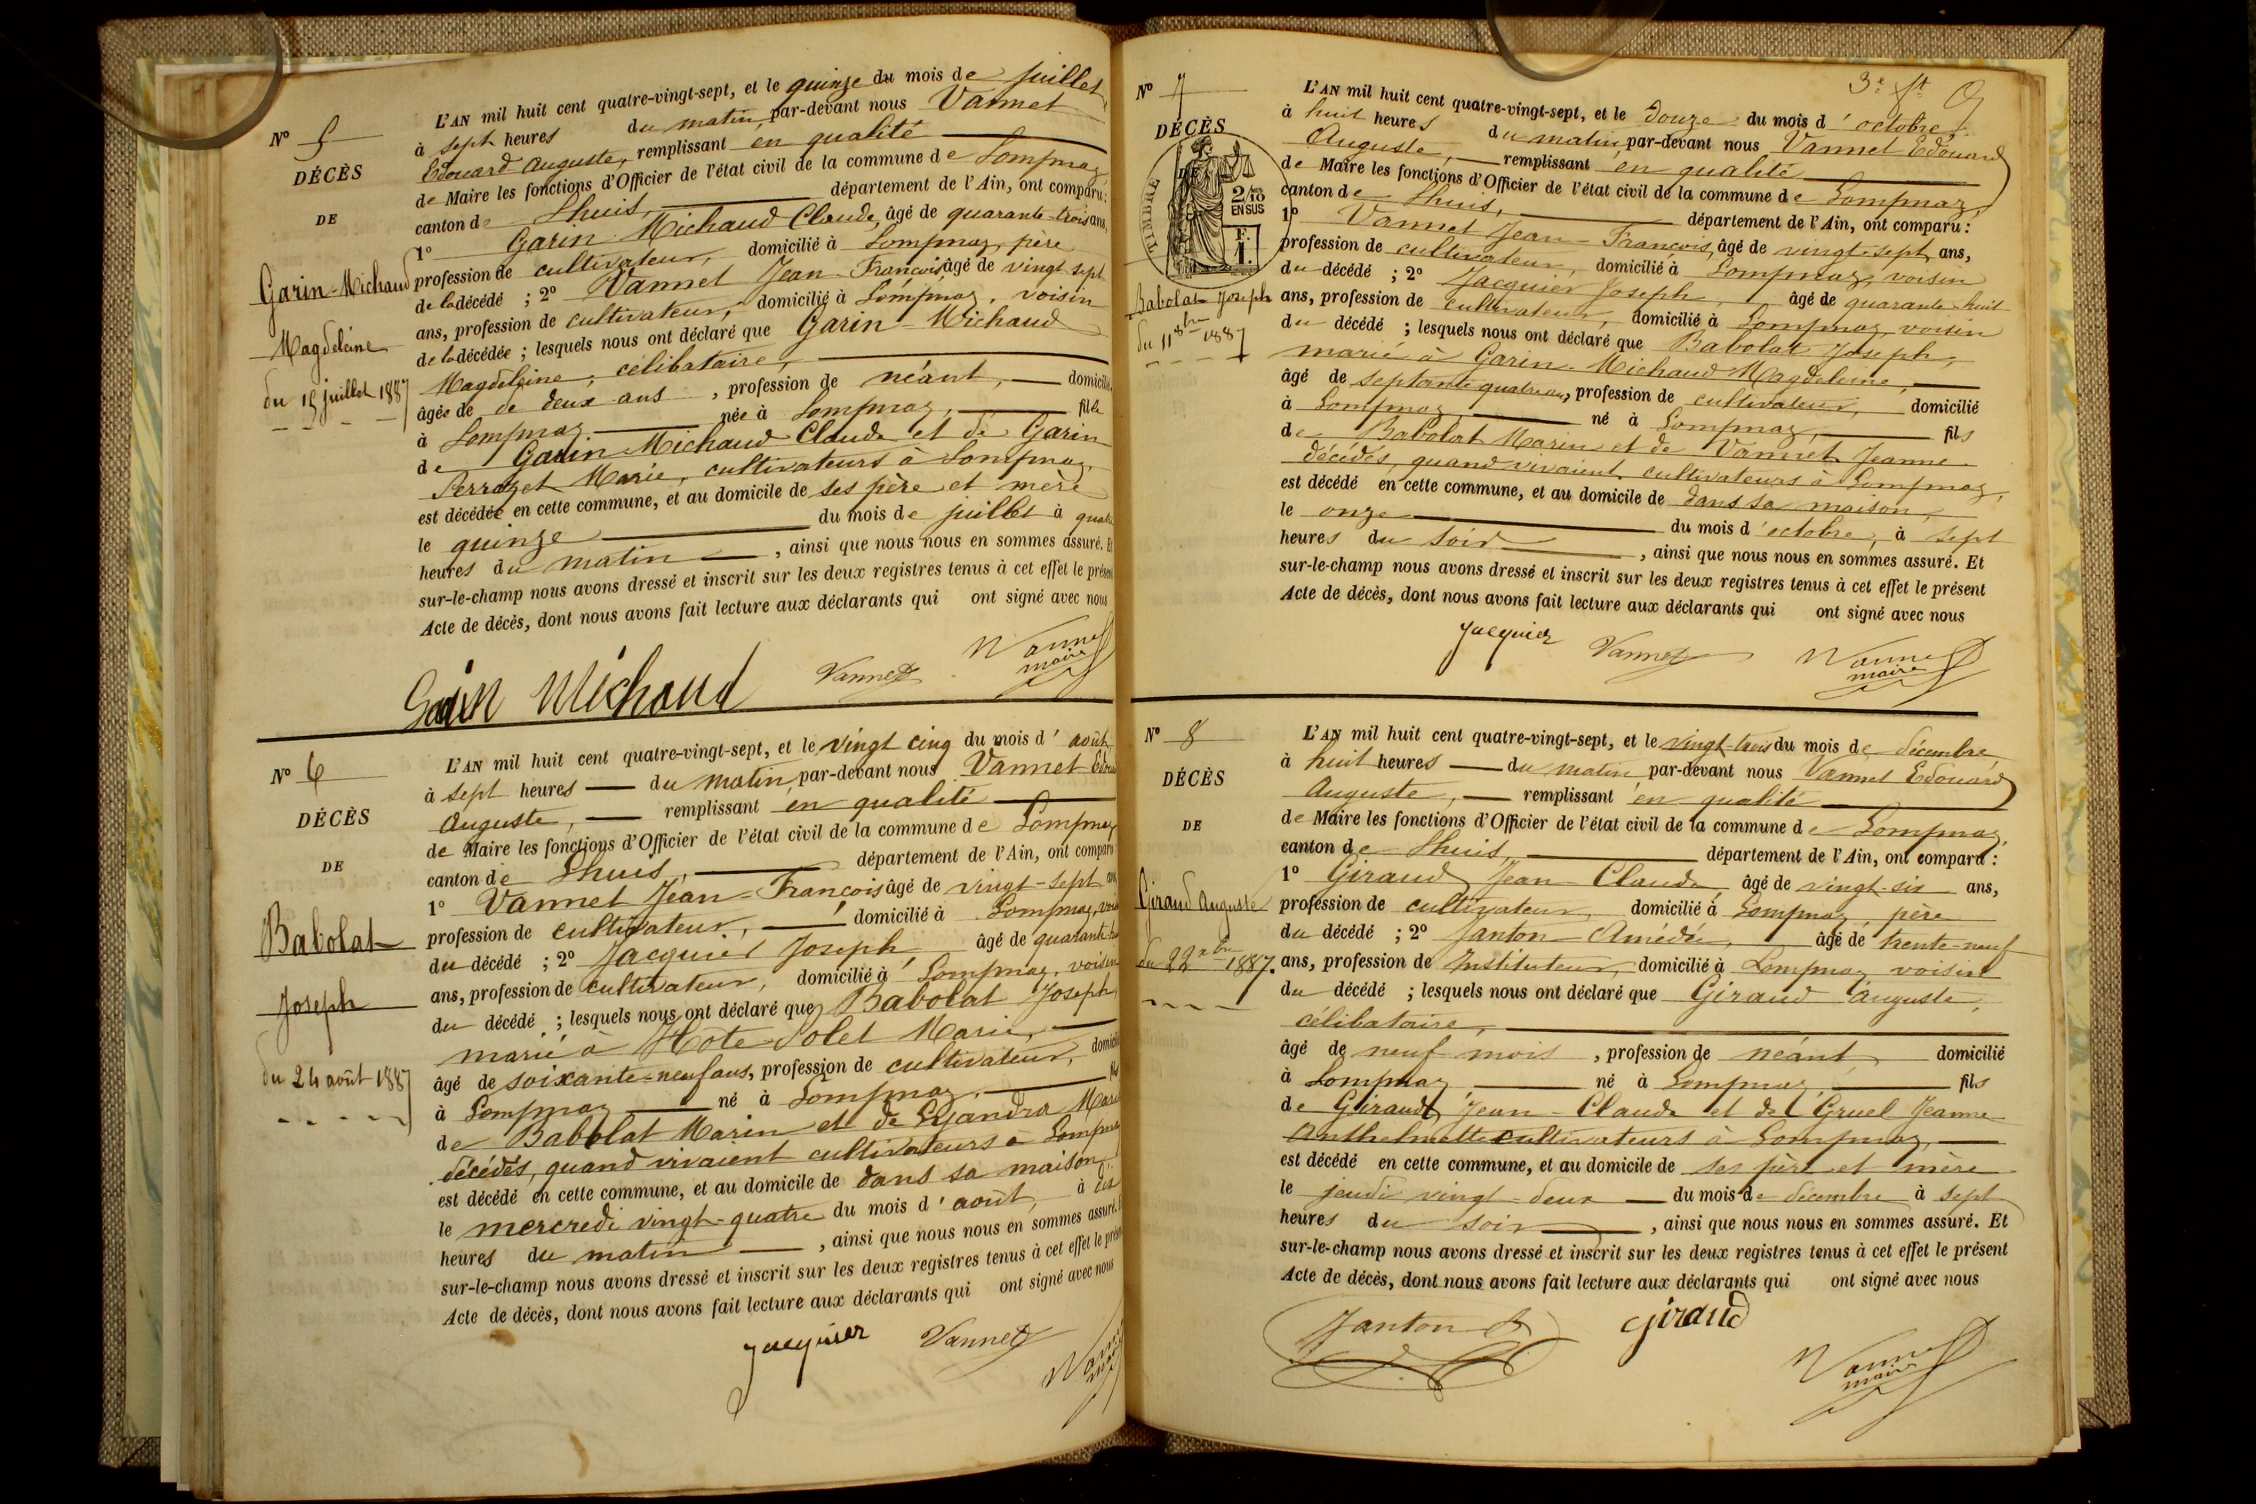 N° 5
DÉCÈS
DE
Garin-Michaud
Magdeleine
du 15 juillet 1887
L'AN mil huit cent quatre-vingt-sept, et le quinze du mois de juillet
à sept heures du matin, par-devant nous Vannet
Edouard Auguste, remplissant en qualité
de Maire les fonctions d'Officier de l'état civil de la commune de Lompnaz
canton de Lhuis, département de l'Ain, ont comparu :
1° Garin-Michaud Claude, âgé de quarante-trois ans,
profession de cultivateur, domicilié à Lompnaz, père
de la décédé ; 2° Vannet Jean-François, âgé de vingt sept
ans, profession de cultivateur, domicilié à Lompnaz, voisin
de la décédée ; lesquels nous ont déclaré que Garin-Michaud
Magdeleine, célibataire,
âgée de de deux ans, profession de néant, domicilié
à Lompnaz, née à Lompnaz, fille
de Garin Michaud Claude et de Garin
Perrozet Marie, cultivateurs à Lompnaz,
est décédée en cette commune, et au domicile de ses père et mère
le quinze du mois de juillet à quatre
heures du matin, ainsi que nous nous en sommes assuré. Et
sur-le-champ nous avons dressé et inscrit sur les deux registres tenus à cet effet le présent
Acte de décès, dont nous avons fait lecture aux déclarants qui ont signé avec nous
Garin Michaud Vannet Vannet
maire
N° 6
DÉCÈS
DE
Babolat
Joseph
du 24 août 1887
L'AN mil huit cent quatre-vingt-sept, et le vingt cinq du mois d'août,
à sept heures du matin, par-devant nous Vannet Edouard
Auguste, remplissant en qualité
de Maire les fonctions d'Officier de l'état civil de la commune de Lompnaz
canton de Lhuis, département de l'Ain, ont comparu
1° Vannet Jean-François âgé de vingt-sept ans
profession de cultivateur, domicilié à Lompnaz, voisin
du décédé ; 2° Jacquier Joseph, âgé de quarante-huit
ans, profession de cultivateur, domicilié à Lompnaz, voisin
du décédé ; lesquels nous ont déclaré que Babolat Joseph
marié à Hote Solet Marie,
âgé de soixante-neuf ans, profession de cultivateur, domicilié
à Lompnaz né à Lompnaz, fils
de Babolat Marin et de Marie
décédés, quand vivaient cultivateurs à Lompnaz
est décédé en cette commune, et au domicile de dans sa maison,
le mercredi vingt-quatre du mois d'août, à dix
heures du matin, ainsi que nous nous en sommes assuré. Et
sur-le-champ nous avons dressé et inscrit sur les deux registres tenus à cet effet le présent
Acte de décès, dont nous avons fait lecture aux déclarants qui ont signé avec nous
Jacquier Vannet Vannet
maire
3e
N° 7
DÉCÈS
DE
TIMBRE
2/10
EN SUS
F.
1.
Babolat Joseph
du 11 8bre 1887
L'AN mil huit cent quatre-vingt-sept, et le douze du mois d'octobre,
à huit heures du matin par-devant nous Vannet Edouard
Auguste, remplissant en qualité
de Maire les fonctions d'Officier de l'état civil de la commune de Lompnaz,
canton de Lhuis, département de l'Ain, ont comparu :
1° Vannet Jean-François, âgé de vingt-sept ans,
profession de cultivateur, domicilié à Lompnaz, voisin
du décédé ; 2° Jacquier Joseph, âgé de quarante-huit
ans, profession de cultivateur, domicilié à Lompnaz, voisin
du décédé ; lesquels nous ont déclaré que Babolat Joseph,
marié à Garin-Michaud Magdeleine,
âgé de septante quatre ans, profession de cultivateur, domicilié
à Lompnaz, né à Lompnaz, fils
de Babolat Marin et de Vannet Jeanne
décédés, quand vivaient cultivateurs à Lompnaz,
est décédé en cette commune, et au domicile de dans sa maison,
le onze du mois d'octobre, à sept
heures du soir, ainsi que nous nous en sommes assuré. Et
sur-le-champ nous avons dressé et inscrit sur les deux registres tenus à cet effet le présent
Acte de décès, dont nous avons fait lecture aux déclarants qui ont signé avec nous
Jacquier Vannet Vannet
maire
N° 8
DÉCÈS
DE
Giraud Auguste
du 22 xbre 1887.
L'AN mil huit cent quatre-vingt-sept, et le vingt-trois du mois de décembre
à huit heures du matin par-devant nous Vannet Edouard
Auguste, remplissant en qualité
de Maire les fonctions d'Officier de l'état civil de la commune de Lompnaz,
canton de Lhuis, département de l'Ain, ont comparu :
1° Giraud Jean Claude, âgé de vingt-six ans,
profession de cultivateur, domicilié à Lompnaz, père
du décédé ; 2° Janton Amédée, âgé de trente-neuf
ans, profession de Instituteur, domicilié à Lompnaz voisin
du décédé ; lesquels nous ont déclaré que Giraud Auguste,
célibataire,
âgé de neuf mois, profession de néant, domicilié
à Lompnaz né à Lompnaz, fils
de Giraud Jean-Claude et de Gruel Jeanne
Anthelmette cultivateurs à Lompnaz,
est décédé en cette commune, et au domicile de ses père et mère
le jeudi vingt-deux du mois de décembre à sept
heures du soir, ainsi que nous nous en sommes assuré. Et
sur-le-champ nous avons dressé et inscrit sur les deux registres tenus à cet effet le présent
Acte de décès, dont nous avons fait lecture aux déclarants qui ont signé avec nous
Janton Giraud Vannet
maire